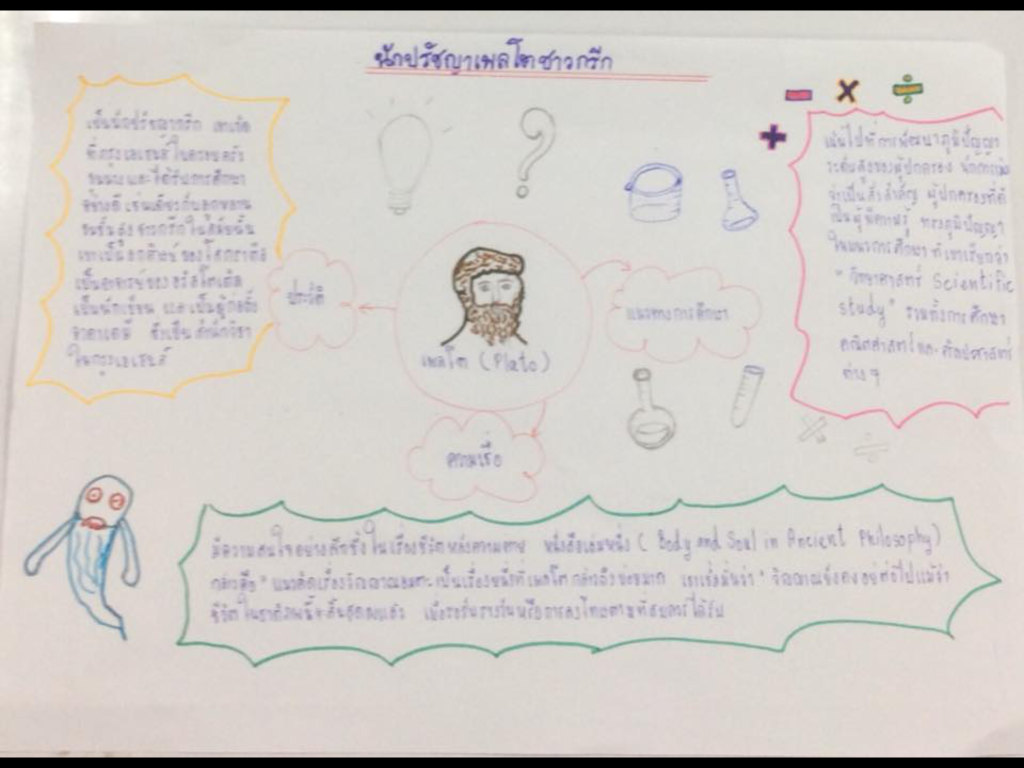 นักปรัชญาเพลโตชาวกรีก
เป็นนักปรัชญากรีก เขาเกิด
ที่กรุงเอเธนส์ในครอบครัว
ขุนนางและได้รับการศึกษา
อย่างดีเช่นเดียวกับลูกหลาน
ชนชั้นสูงชาวกรีกในสมัยนั้น
เขาเป็นลูกศิษย์ของโสกราตีส
เป็นอาจารย์ของอริสโตเติล
เป็นนักเขียน และเป็นผู้ก่อตั้ง
อาคาเดมี ซึ่งเป็นสำนักวิชา
ในกรุงเอเธนส์
ประวัติ
เพลโต (Plato)
แนวทางการศึกษา
เน้นไปที่การพัฒนาภูมิปัญญา
ระดับสูงของผู้ปกครอง
จำเป็นสำคัญ ผู้ปกครองที่ดี
เป็นผู้มีความรู้ ทรงภูมิปัญญา
ในแนวการศึกษา ที่เขาเรียกว่า
" วิทยาศาสตร์ Scientific
study" รวมทั้งการศึกษา
คณิตศาสตร์และศิลปศาสตร์
ต่างๆ
ความเชื่อ
มีความสนใจอย่างลึกซึ้งในเรื่องชีวิตหลังความตาย หนังสือเล่มหนึ่ง ( Body and Soul in Ancient Philosophy)
กล่าวคือ " แนวคิดเรื่องวิญญาณอมตะเป็นเรื่องหนึ่งที่เพลโตกล่าวถึงบ่อยมาก เขาเชื่อมั่นว่า " วิญญาณยังคงอยู่ต่อไปแม้ว่า
ชีวิตในชาตินี้จะสิ้นสุดลงแล้ว เพื่อรอรับรางวัลหรือการลงโทษตามที่สมควรได้รับ